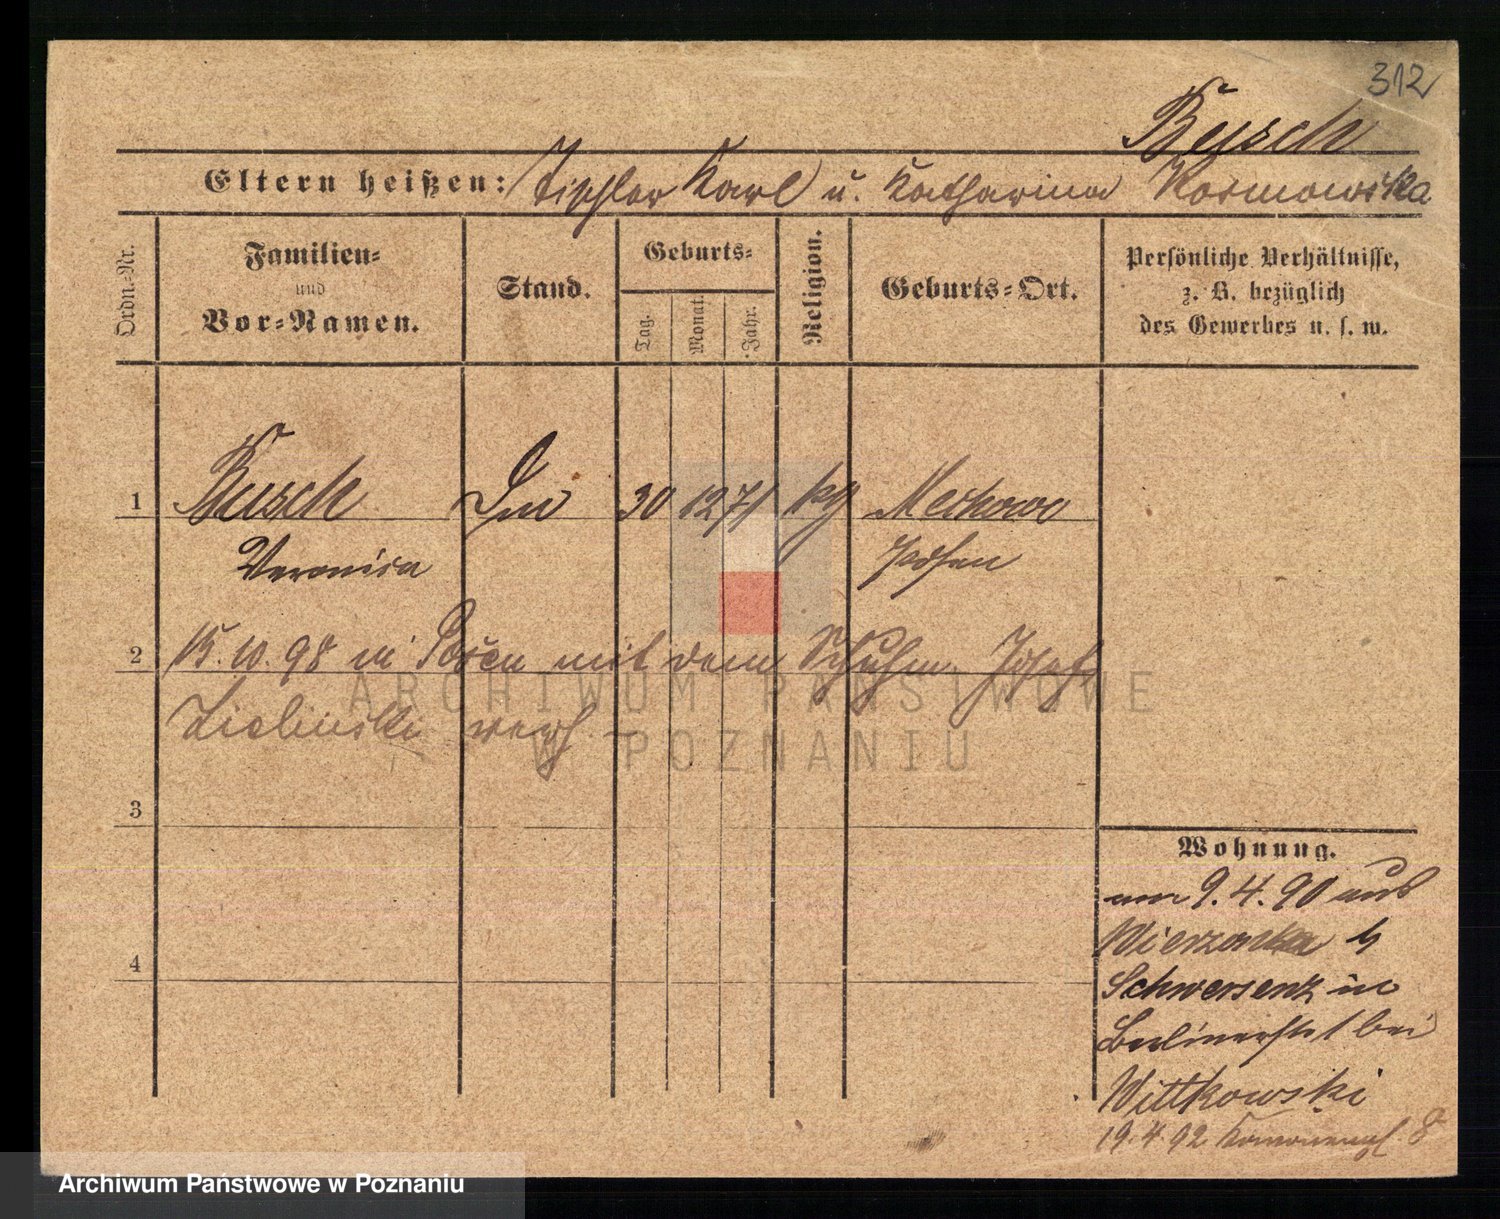 312
Busch
Eltern heißen: Tischler Karl u. Katharina Kosmowska
Ordn.-Nr.
Familien-
und
Vor-Namen.
Stand.
Geburts-
Tag.
Monat.
Jahr.
Religion.
Geburts-Ort.
Persönliche Verhältnisse,
z. B. bezüglich
des Gewerbes u. s. w.
1 Busch 30 12 71 Posen
Veronica
2 15.10.98 in Posen mit dem Schuhm. Josef
Zielinski
3
4
Wohnung.
am 9.4.90 aus
Wierzonka b
Schwersenz in
Berlinerstr 1 bei
Wittkowski
19.4.92 8
ARCHIWUM PAŃSTWOWE
W POZNANIU
Archiwum Państwowe w Poznaniu